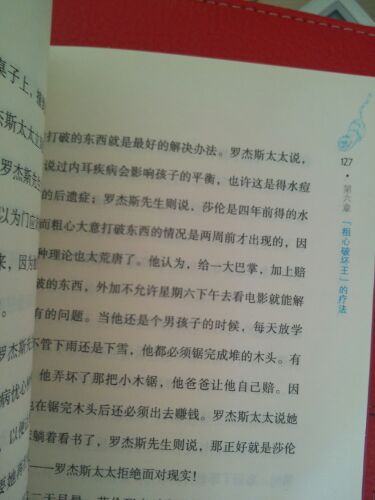 桌子上，
杰斯太太
罗杰斯先
以为门应
来，因为
。
罗杰斯先
病忧心
以便
打破的东西就是最好的解决办法。罗杰斯太太说，
说过内耳疾病会影响孩子的平衡，也许这是得水痘
的后遗症；罗杰斯先生则说，莎伦是四年前得的水
而粗心大意打破东西的情况是两周前才出现的，因
种理论也太荒唐了。他认为，给一大巴掌，加上赔
破的东西，外加不允许星期六下午去看电影就能解
有的问题。当他还是个男孩子的时候，每天放学
不管下雨还是下雪，他都必须锯完成堆的木头。有
他弄坏了那把小木锯，他爸爸让他自己赔。因
也在锯完木头后还必须出去赚钱。罗杰斯太太说她
去躺着看书了，罗杰斯先生则说，那正好就是莎伦
——罗杰斯太太拒绝面对现实！
127
第六章 “粗心破坏王”的疗法